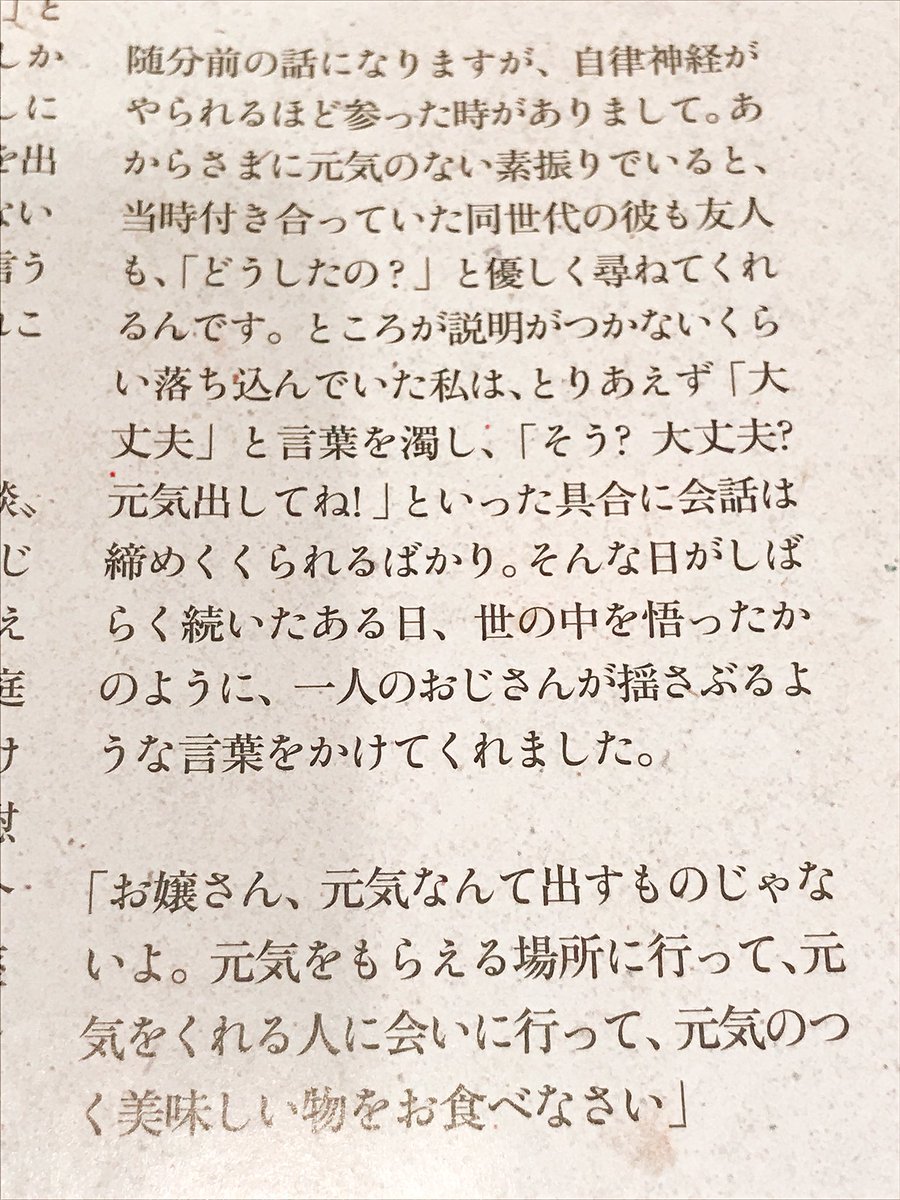 」と
しか
しに
を出
ない
言う
れこ
談〟
じ
え
庭
け
慰
随分前の話になりますが、自律神経が
やられるほど参った時がありまして。あ
からさまに元気のない素振りでいると、
当時付き合っていた同世代の彼も友人
も、「どうしたの？」と優しく尋ねてくれ
るんです。ところが説明がつかないくら
い落ち込んでいた私は、とりあえず「大
丈夫」と言葉を濁し、「そう? 大丈夫?
元気出してね!」といった具合に会話は
締めくくられるばかり。そんな日がしば
らく続いたある日、世の中を悟ったか
のように、一人のおじさんが揺さぶるよ
うな言葉をかけてくれました。
「お嬢さん、元気なんて出すものじゃな
いよ。元気をもらえる場所に行って、元
気をくれる人に会いに行って、元気のつ
く美味しい物をお食べなさい」